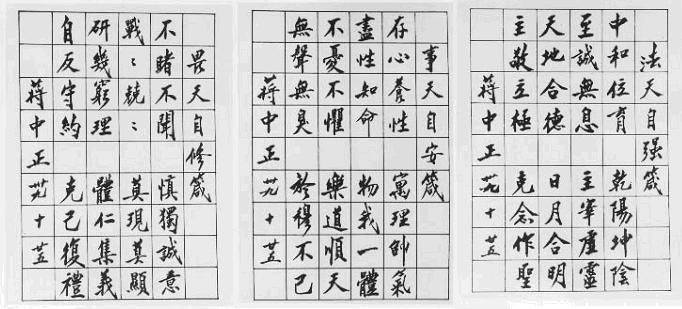 法天自强箴
中和位育 乾陽坤陰
至誠無息 主宰虛靈
天地合德 日月合明
主敬立極 克念作聖
蔣中正 卅九 十 廿五
事天自安箴
存心養性 寓理帥氣
盡性知命 物我一體
不憂不懼 樂道順天
無聲無臭 於穆不已
蔣中正 卅九 十 廿五
畏天自修箴
不睹不聞 慎獨誠意
戰〻兢〻 莫現莫顯
研幾窮理 體仁集義
自反守約 克己復禮
蔣中正 卅九 十 廿五